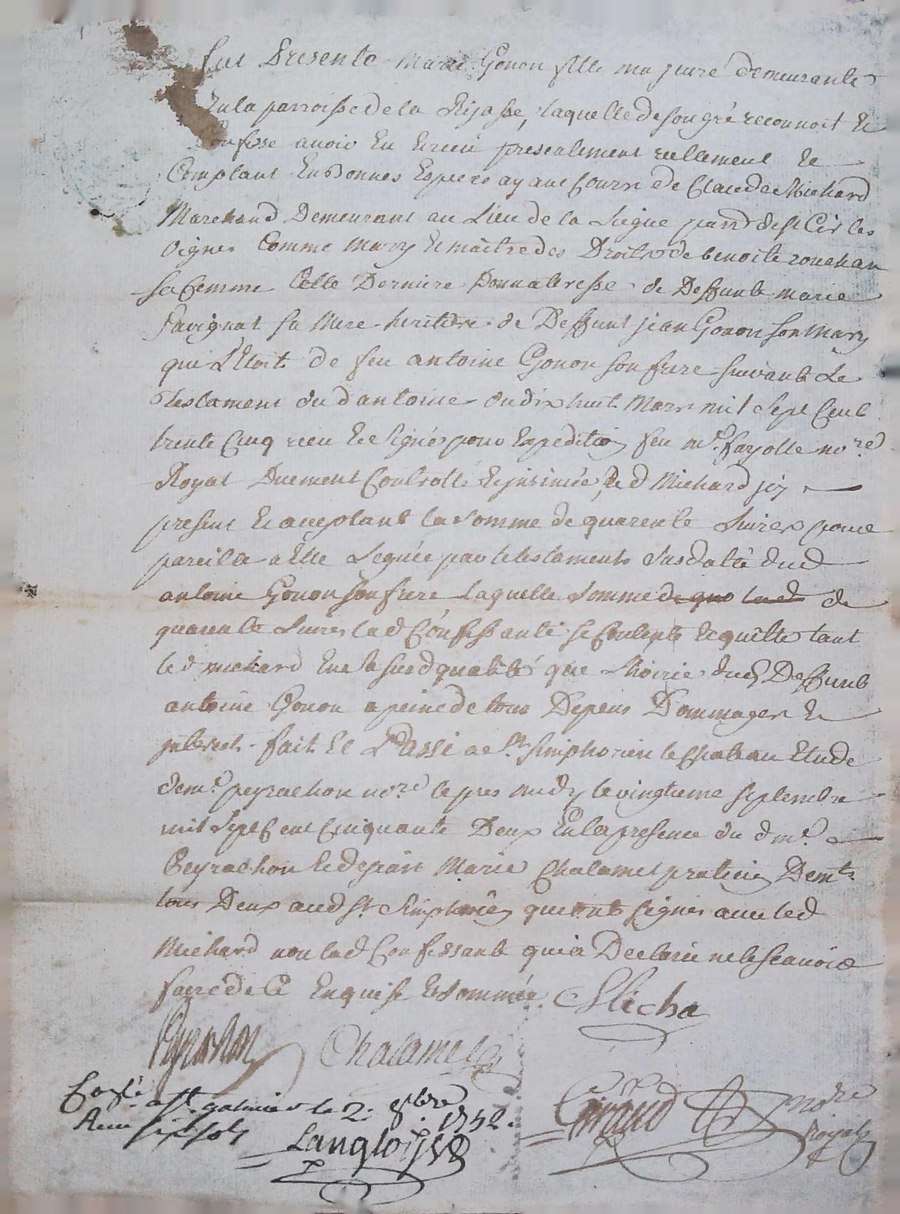 Fut Presente Marie Gonon fille majeure demeurante
En la parroisse de la Rijasse, laquelle de son gré reconnoit Et
Confesse avoir Eu Et receu presentement reellement Et
Comptant En Bonnes Especes ayant Cours de Claude Michard
Marchand Demeurant au Lieu de la parr de St Cir les
Vignes Comme Mary Et maître des Droits de benoite
sa femme Celle Derniere Donnateresse de Deffunte marie
Savignat sa Mere heritiere de Deffunt jean Gonon son Mary
qui L'Etoit de feu antoine Gonon son frere suivant Le
Testament du d antoine du dix huit Mars mil Sept Cent
trente Cinq receu Et Signé pour Expedition feu me fayolle nore
Royal Duement Controllé Et insinué, led Michard jcy
present Et aceptant la somme de quarente Livres pour
pareille a Elle Leguée par le testament Susdaté dud
antoine Gonon son frere Laquelle Somme de
quarente Livres lad Confessante se Contente Et quitte tant
led michard En la susd qualité que L'hoirie dud Deffunt
antoine Gonon a peine de tous Depens Dommages Et
jnterets fait Et Passé a St Simphorien le Chateau Etude
de me peyrachon nore le pres midy le vingtieme septembre
mil Sept Cent Cinquante Deux En la presence du d me
Peyrachon Et de Marie Chalamel praticien Demts
tous Deux aud St Simphorien qui ont signés avec led
Michard non lad Confessante qui a Declaré ne le scavoir
faire de Ce Enquise Et sommée
Peyrachon Chalamel
a St galmier le 2. 8bre
1752.
Receu six sols
Langlois
Giraud nore
Royal